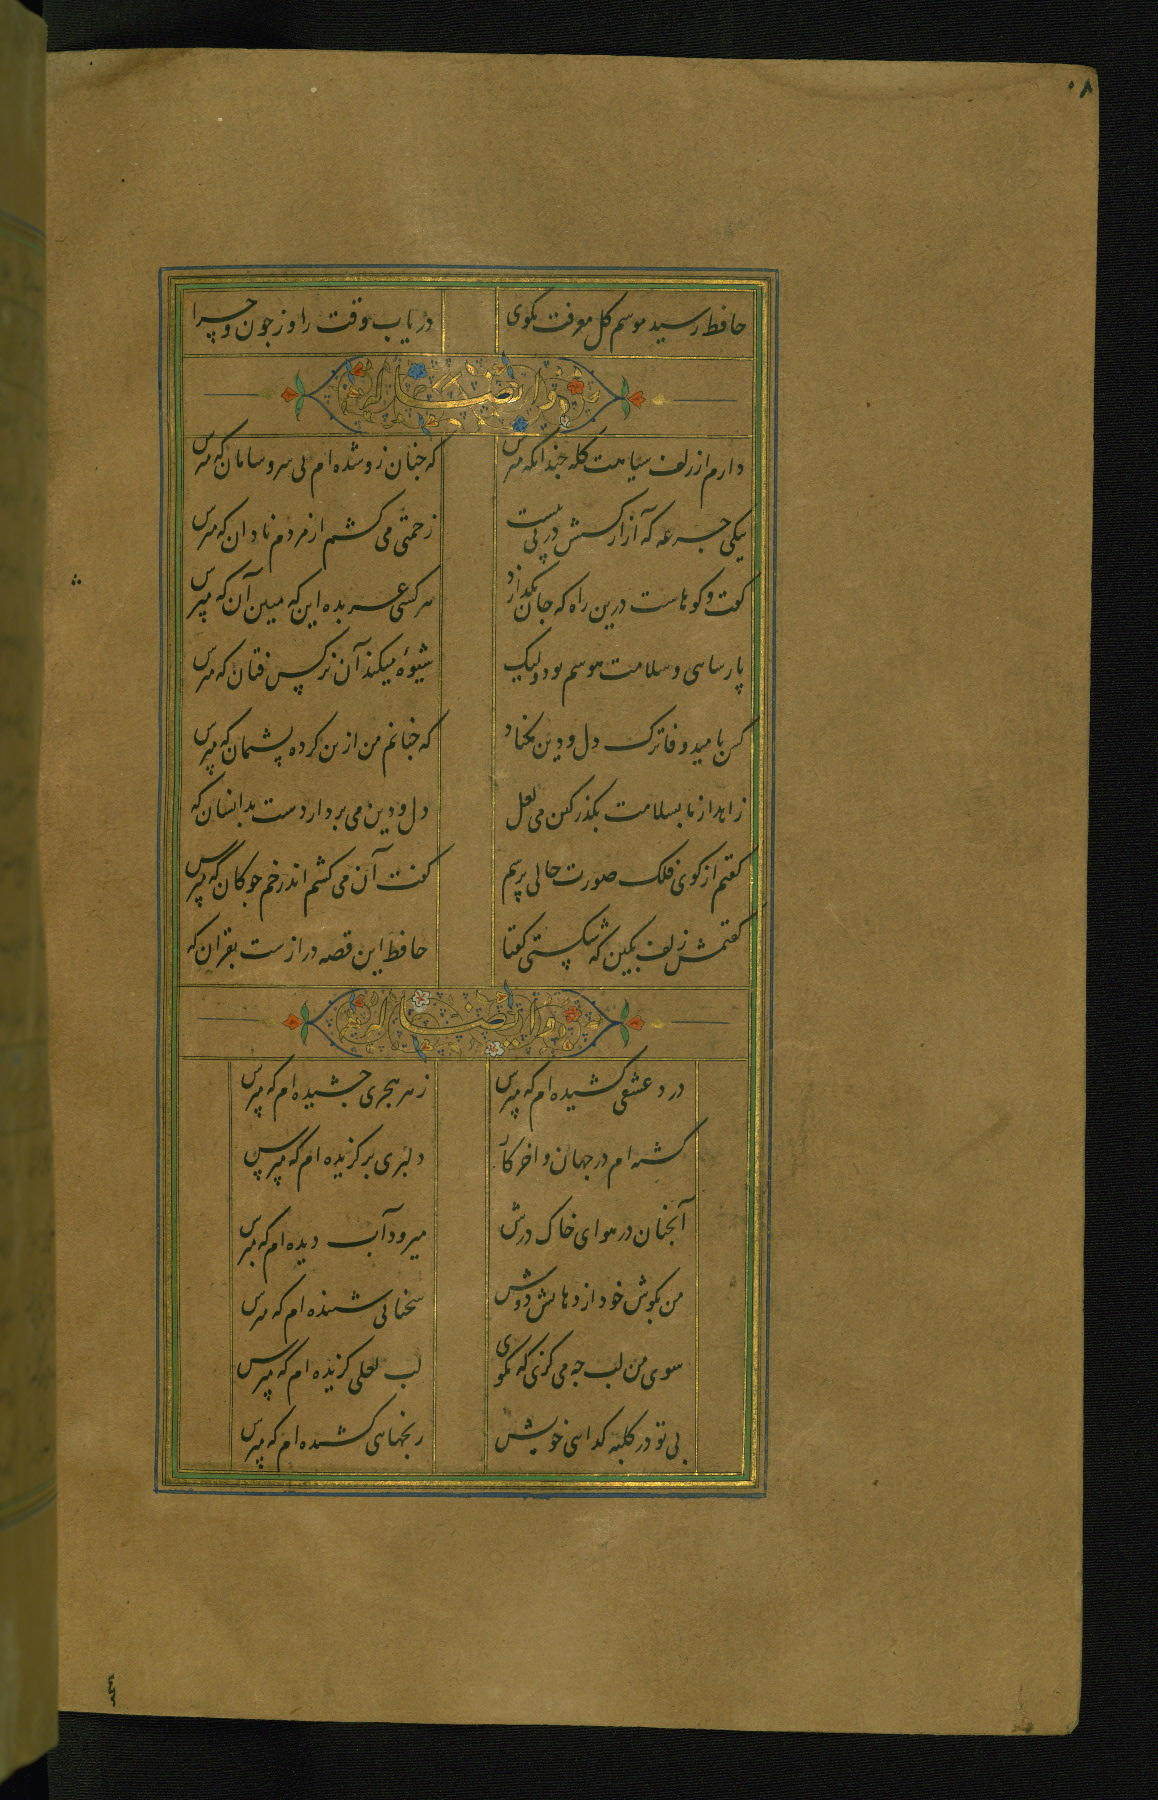 ۰۸
حافظ رسید موسم گل معرفت مگوی
دریاب وقت را و ز چون و چرا
وله ایضا
دارم از زلف سیاهت گله چندانکه مپرس
که چنان زو شده ام بی سر و سامان که مپرس
بیکی جرعه که آزار کسش در پی نیست
زحمتی می کشم از مردم نادان که مپرس
گفت و گوهاست درین راه که جان بگدازد
هر کسی عربده این که مبین آن که مپرس
پارسایی و سلامت هوسم بود ولیک
شیوهٔ میکند آن نرگس فتان که مپرس
کس بامید وفا ترک دل و دین مکناد
که چنانم من ازین کرده پشیمان که مپرس
زاهد از ما بسلامت بگذر کین می لعل
دل و دین می برد از دست بدانسان که
گفتم از گوی فلک صورت حالی پرسم
گفت آن می کشم اندر خم چوگان که مپرس
گفتمش زلف بکین که شکستی گفتا
حافظ این قصه درازست بقران که
وله ایضا
درد عشقی کشیده ام که مپرس
زهر هجری چشیده ام که مپرس
گشته ام در جهان و آخر کار
دلبری برگزیده ام که مپرس
آنچنان در هوای خاک درش
میرود آب دیده ام که مپرس
من بگوش خود از دهانش دوش
سخنانی شنیده ام که مپرس
سوی من لب چه می گزی که مگوی
لب لعلی گزیده ام که مپرس
بی تو در کلبه گدایی خویش
رنجهایی کشیده ام که مپرس